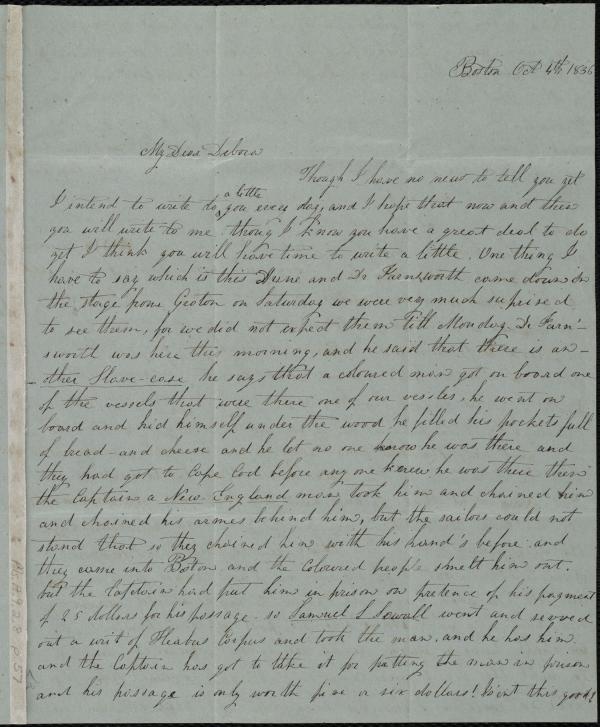 Boston Oct 4th 1836
My Dear Debora
Though I have no news to tell you yet
a little
I intend to write to you every day, and I hope that now and then
you will write to me thoug I know you have a great deal to do
yet I think you will have time to write a little. One thing I
have to say which is this Dune and Dr Farnsworth came down in
the stage from Groton on Saturday we were very much suprised
to see them, for we did not expect them till Monday. Dr Farn-
sworth was here this morning, and he said that there is an-
other Slave-case he says that a coloured man got on board one
of the vessels that were there one of our vessles, he went on
board and hid himself under the wood he filled his pockets full
of bread-and cheese and he let no one know he was there and
they had got to Cape Cod before any one knew he was there then
the Captain a New-England man took him and chained him
and chained his armes behind him, but the sailors could not
stand that so they chained him with his hand's before. and
they came into Boston and the coloured people smelt him out.
but the Captain had put him in prison on pretence of his payment
of 25 dollars for his passage. so Samuel S Sewall went and served
out a writ of Heabus Corpus and took the man, and he has him
and the Captain has got to take it for putting the man in prison
and his passage is only worth five or six dollars! Is'ent this good!
Ms.A.9.2.8 p.57